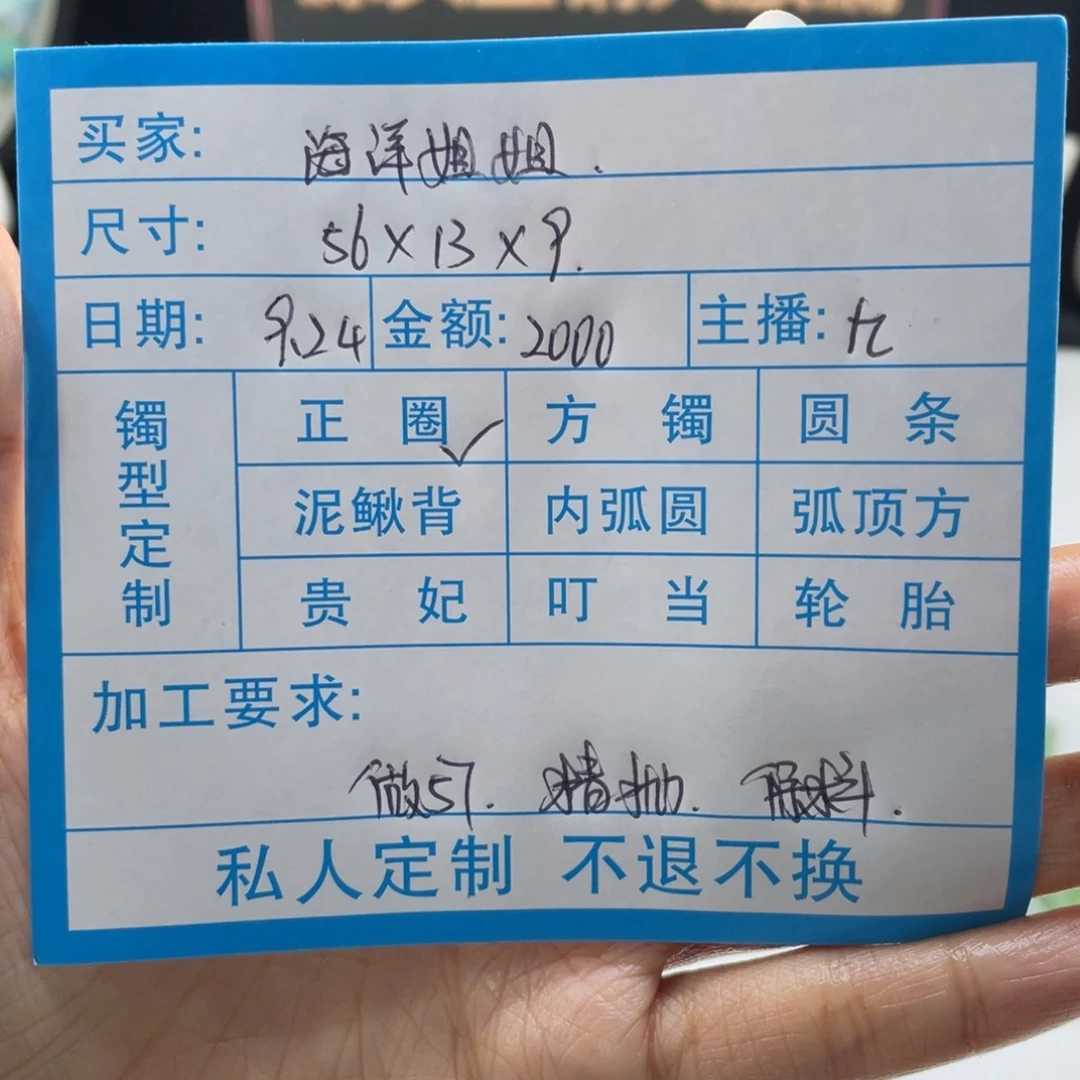 买家: 海洋姐姐.
尺寸: 56×13×9.
日期: 9.24 金额: 2000 主播: 九
镯型定制
正圈✓ 方镯 圆条
泥鳅背 内弧圆 弧顶方
贵妃 叮当 轮胎
加工要求:
做57. 精抛. 保料.
私人定制 不退不换